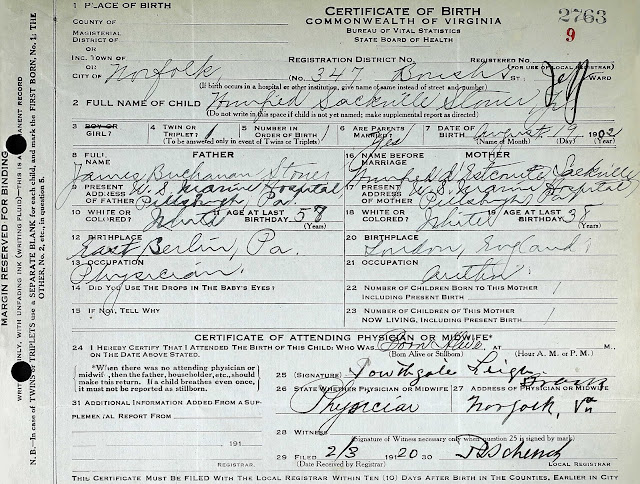 1 PLACE OF BIRTH
CERTIFICATE OF BIRTH
2763
COUNTY OF
COMMONWEALTH OF VIRGINIA
9
MAGISTERIAL
DISTRICT OF
BUREAU OF VITAL STATISTICS
STATE BOARD OF HEALTH
OR
INC. TOWN OF
REGISTRATION DISTRICT NO.
REGISTERED NO.
(FOR USE OF LOCAL REGISTRAR)
OR
CITY OF Norfolk (No. 347 ST. WARD
(If birth occurs in a hospital or other institution, give name of same instead of street and number)
2 FULL NAME OF CHILD Winifred Sackville Stoner Jr.
(Do not write in this space if child is not yet named; make supplemental report as directed)
3 BOY OR GIRL? 4 TWIN OR TRIPLET? 5 NUMBER IN ORDER OF BIRTH 6 ARE PARENTS MARRIED? Yes 7 DATE OF BIRTH August 19 1902
(To be answered only in event of Twins or Triplets) (Name of Month) (Day) (Year)
8 FULL NAME FATHER
James Buchanan Stoner
9 PRESENT ADDRESS OF FATHER U.S. Marine Hospital
Pittsburgh, Pa.
10 WHITE OR COLORED? White 11 AGE AT LAST BIRTHDAY 58 (Years)
12 BIRTHPLACE
East Berlin, Pa.
13 OCCUPATION
Physician
14 DID YOU USE THE DROPS IN THE BABY'S EYES?
15 IF NOT, TELL WHY
16 NAME BEFORE MARRIAGE MOTHER
Winifred Sackville
17 PRESENT ADDRESS OF MOTHER U.S. Marine Hospital
Pittsburgh, Pa.
18 WHITE OR COLORED? White 19 AGE AT LAST BIRTHDAY 38 (Years)
20 BIRTHPLACE
London, England
21 OCCUPATION
Author
22 NUMBER OF CHILDREN BORN TO THIS MOTHER
INCLUDING PRESENT BIRTH 1
23 NUMBER OF CHILDREN OF THIS MOTHER
NOW LIVING, INCLUDING PRESENT BIRTH 1
CERTIFICATE OF ATTENDING PHYSICIAN OR MIDWIFE*
24 I HEREBY CERTIFY THAT I ATTENDED THE BIRTH OF THIS CHILD: WHO WAS Born Alive AT M.,
ON THE DATE ABOVE STATED. (Born Alive or Stillborn) (Hour A. M. or P. M.)
*When there was no attending physician or midwife, then the father, householder, etc., should
make this return. If a child breathes even once, it must not be reported as stillborn.
25 (SIGNATURE) Southgate Leigh
26 STATE WHETHER PHYSICIAN OR MIDWIFE 27 ADDRESS OF PHYSICIAN OR MIDWIFE
Physician Norfolk, Va
31 ADDITIONAL INFORMATION ADDED FROM A SUPPLEMENTAL REPORT FROM
191
REGISTRAR.
28 WITNESS
(Signature of Witness necessary only when question 25 is signed by mark)
29 FILED 2/3 1920 30
(Date Received by Registrar) LOCAL REGISTRAR
THIS CERTIFICATE MUST BE FILED WITH THE LOCAL REGISTRAR WITHIN TEN (10) DAYS AFTER BIRTH IN THE COUNTIES, EARLIER IN CITY
MARGIN RESERVED FOR BINDING
WRITE ONLY, WITH UNFADING INK (WRITING FLUID)—THIS IS A PERMANENT RECORD
N. B.—In case of TWINS or TRIPLETS use a SEPARATE BLANK for each child, and mark the FIRST BORN, No. 1; THE
OTHER, No. 2, etc., in question 5.